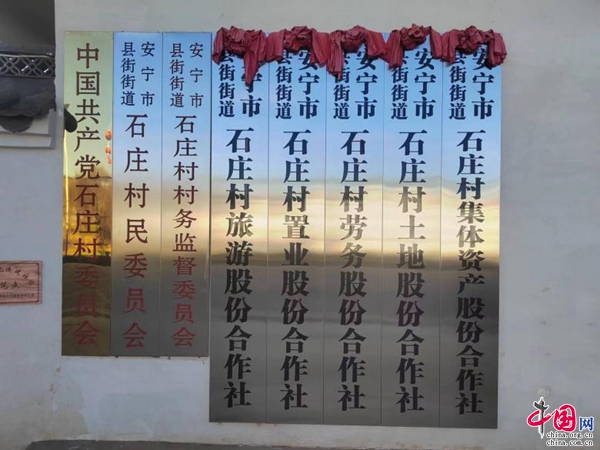 中国共产党石庄村委员会
安宁市
县街街道
石庄村民委员会
安宁市
县街街道
石庄村村务监督委员会
宁市
县街街道
石庄村旅游股份合作社
安宁市
县街街道
石庄村置业股份合作社
安宁市
县街街道
石庄村劳务股份合作社
安宁市
县街街道
石庄村土地股份合作社
安宁市
县街街道
石庄村集体资产股份合作社
中国网
china.org.cn
china.com.cn